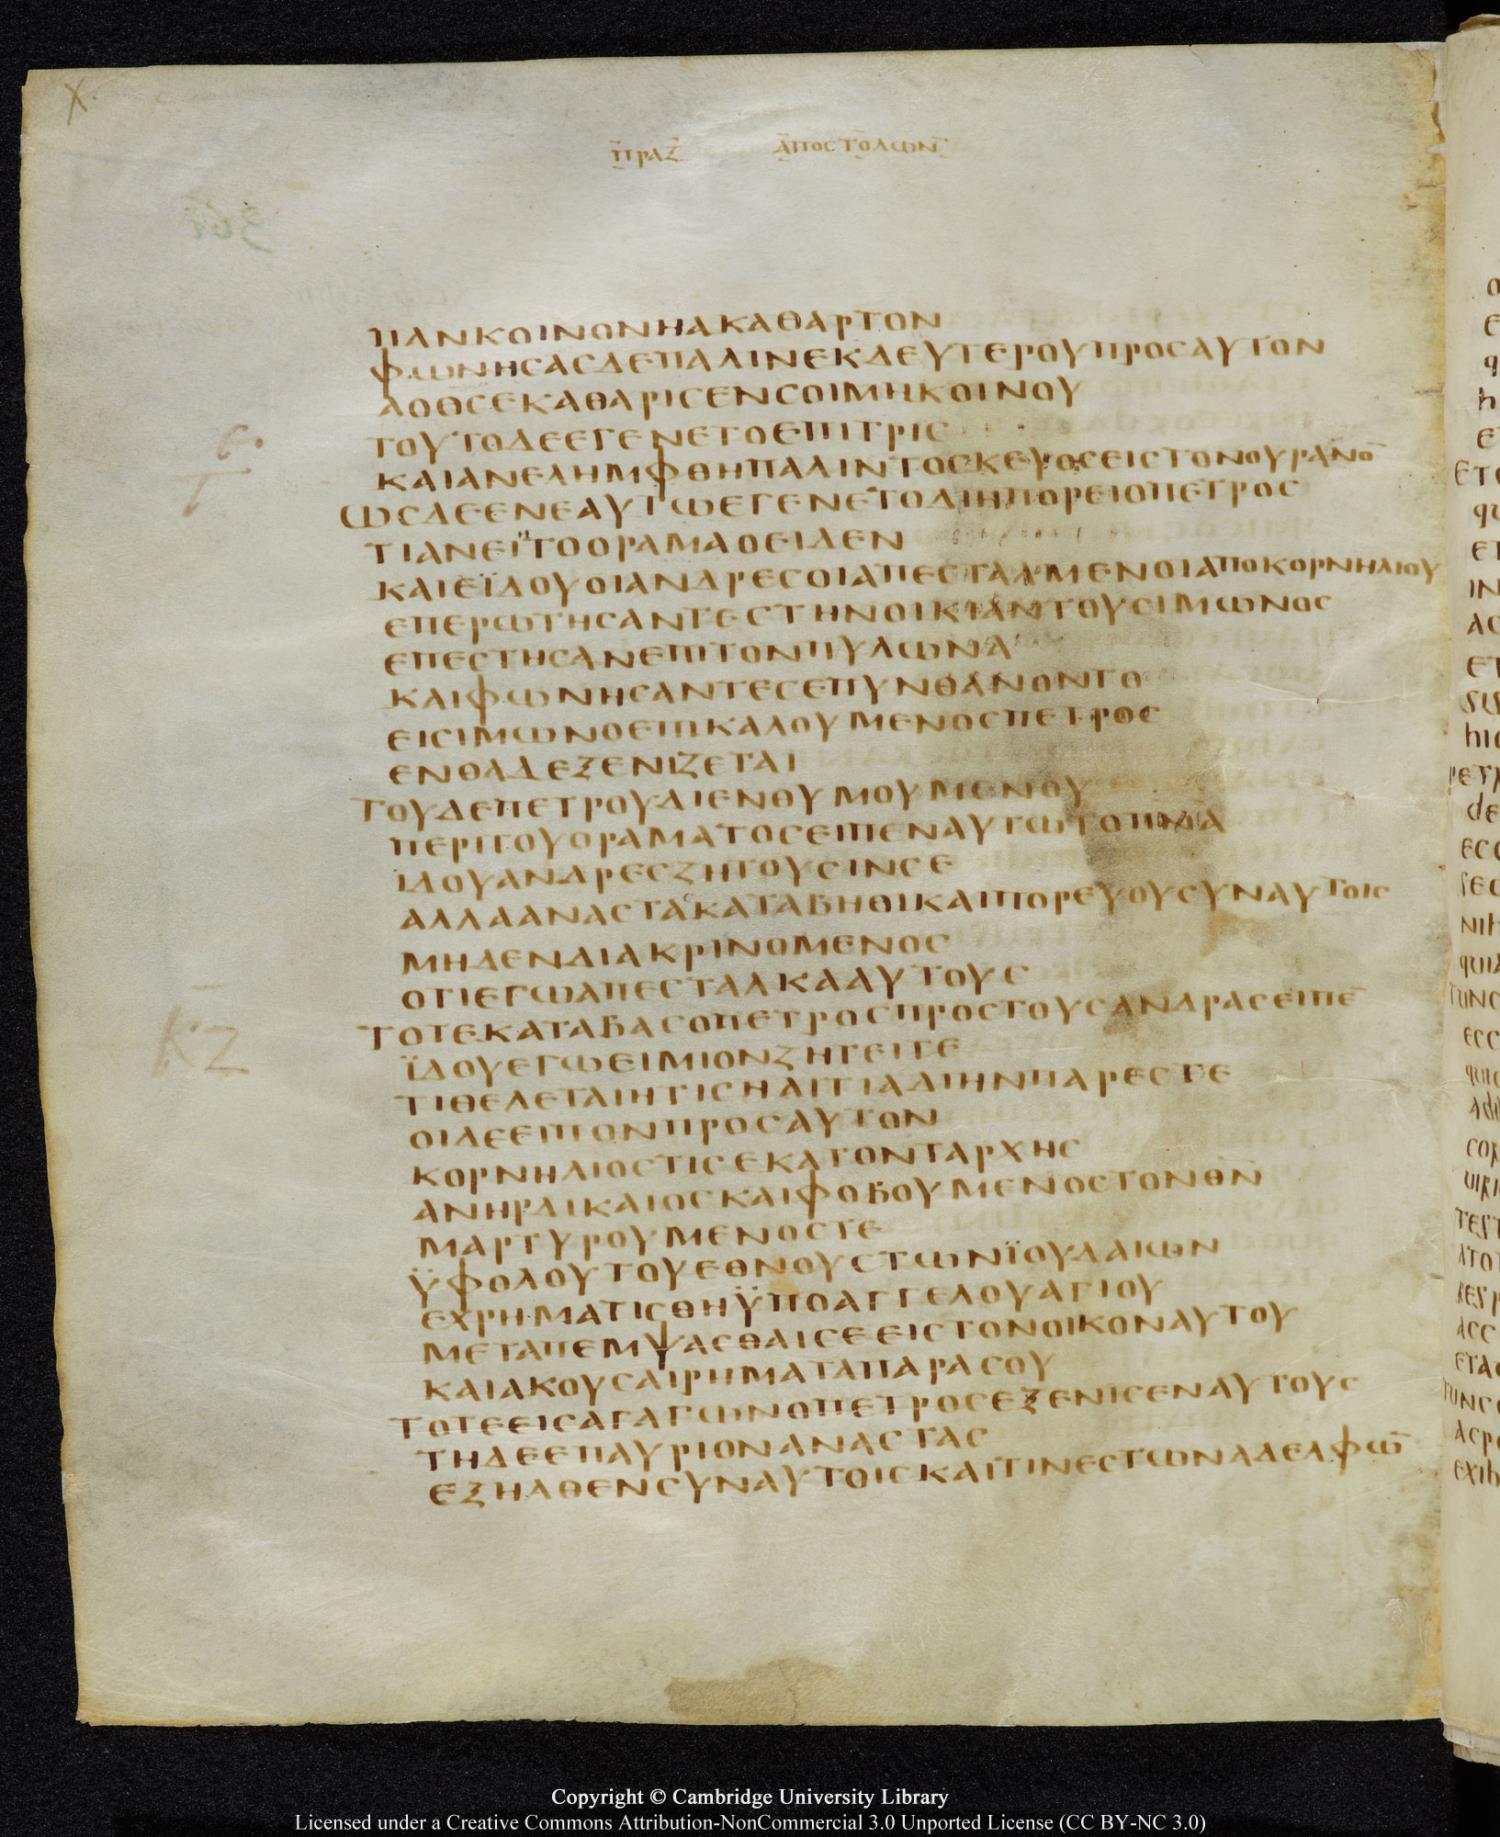 Χ.
ΠΡΑΞ ΑΠΟСΤΟΛωΝ
ΠΑΝΚΟΙΝΟΝΗΑΚΑΘΑΡΤΟΝ
ΦωΝΗСΑСΔΕΠΑΛΙΝΕΚΔΕΥΤΕΡΟΥΠΡΟСΑΥΤΟΝ
ΑΟΘСΕΚΑΘΑΡΙСΕΝСΟΙΜΗΚΟΙΝΟΥ
ΤΟΥΤΟΔΕΕΓΕΝΕΤΟΕΠΙΤΡΙС
ΚΑΙΑΝΕΛΗΜΦΘΗΠΑΛΙΝΤΟСΚΕΥΟСΕΙСΤΟΝΟΥΡΑΝΟ̅
ωСΔΕΕΝΕΑΥΤωΕΓΕΝΕΤΟΔΙΗΠΟΡΕΙΟΠΕΤΡΟС
ΤΙΑΝΕΙΗΤΟΟΡΑΜΑΟΕΙΔΕΝ
ΚΑΙΕΪΔΟΥΟΙΑΝΔΡΕСΟΙΑΠΕСΤΑΛΜΕΝΟΙΑΠΟΚΟΡΝΗΛΙΟΥ
ΕΠΕΡωΤΗСΑΝΤΕСΤΗΝΟΙΚΙΑΝΤΟΥСΙΜωΝΟС
ΕΠΕСΤΗСΑΝΕΠΙΤΟΝΠΥΛωΝΑ
ΚΑΙΦωΝΗСΑΝΤΕСΕΠΥΝΘΑΝΟΝΤΟ
ΕΙСΙΜωΝΟΕΠΙΚΑΛΟΥΜΕΝΟСΠΕΤΡΟС
ΕΝΘΑΔΕΞΕΝΙΖΕΤΑΙ
ΤΟΥΔΕΠΕΤΡΟΥΔΙΕΝΘΥΜΟΥΜΕΝΟΥ
ΠΕΡΙΤΟΥΟΡΑΜΑΤΟСΕΙΠΕΝΑΥΤωΤΟΠΝΑ
ΪΔΟΥΑΝΔΡΕСΖΗΤΟΥСΙΝСΕ
ΑΛΛΑΑΝΑСΤΑСΚΑΤΑΒΗΘΙΚΑΙΠΟΡΕΥΟΥСΥΝΑΥΤΟΙС
ΜΗΔΕΝΔΙΑΚΡΙΝΟΜΕΝΟС
ΟΤΙΕΓωΑΠΕСΤΑΛΚΑΑΥΤΟΥС
ΤΟΤΕΚΑΤΑΒΑСΟΠΕΤΡΟСΠΡΟСΤΟΥСΑΝΔΡΑСΕΙΠΕ̅
ΪΔΟΥΕΓωΕΙΜΙΟΝΖΗΤΕΙΤΕ
ΤΙΘΕΛΕΤΑΙΗΤΙСΗΑΙΤΙΑΔΙΗΝΠΑΡΕСΤΕ
ΟΙΔΕΕΙΠΟΝΠΡΟСΑΥΤΟΝ
ΚΟΡΝΗΛΙΟСΤΙСΕΚΑΤΟΝΤΑΡΧΗС
ΑΝΗΡΔΙΚΑΙΟСΚΑΙΦΟΒΟΥΜΕΝΟСΤΟΝΘΝ̅
ΜΑΡΤΥΡΟΥΜΕΝΟСΤΕ
ΫΦΟΛΟΥΤΟΥΕΘΝΟΥСΤωΝΪΟΥΔΑΙωΝ
ΕΧΡΗΜΑΤΙСΘΗΫΠΟΑΓΓΕΛΟΥΑΓΙΟΥ
ΜΕΤΑΠΕΜΨΑСΘΑΙСΕΕΙСΤΟΝΟΙΚΟΝΑΥΤΟΥ
ΚΑΙΑΚΟΥСΑΙΡΗΜΑΤΑΠΑΡΑСΟΥ
ΤΟΤΕΕΙСΑΓΑΓωΝΟΠΕΤΡΟСΕΞΕΝΙСΕΝΑΥΤΟΥС
ΤΗΔΕΕΠΑΥΡΙΟΝΑΝΑСΤΑС
ΕΞΗΛΘΕΝСΥΝΑΥΤΟΙСΚΑΙΤΙΝΕСΤωΝΑΔΕΛΦω̅
Copyright © Cambridge University Library
Licensed under a Creative Commons Attribution-NonCommercial 3.0 Unported License (CC BY-NC 3.0)